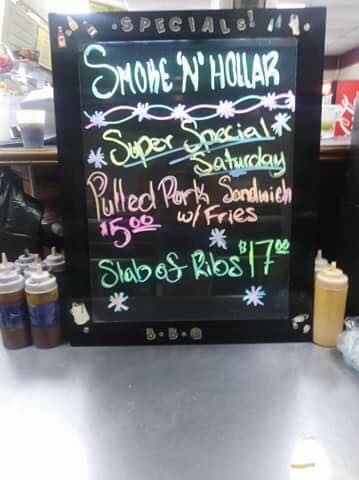 SPECIALS!
SMOKE 'N' HOLLAR
Super Special
Saturday
Pulled Pork Sandwich
$5.00 w/ Fries
Slab of Ribs $17.00
B·B·Q